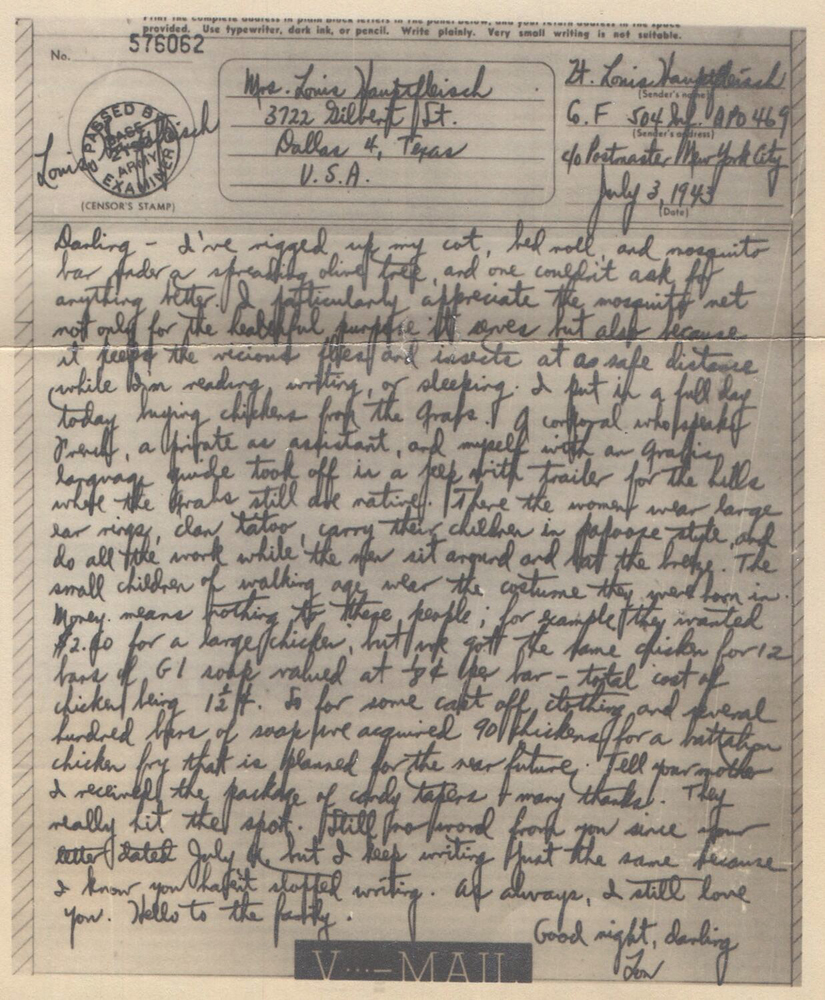 Print the complete address in plain block letters in the panel below, and your return address in the space
provided. Use typewriter, dark ink, or pencil. Write plainly. Very small writing is not suitable.
No. 576062
PASSED BY
BASE
ARMY
EXAMINER
Louis Hauptfleisch
(CENSOR'S STAMP)
Mrs. Louis Hauptfleisch
3722 Gilbert St.
Dallas 4, Texas
U.S.A.
Lt. Louis Hauptfleisch
(Sender's name)
504 Inf. APO 469
(Sender's address)
c/o Postmaster New York City
July 3, 1943
(Date)
Darling – I've rigged up my cot, bed roll, and mosquito
bar under a spreading olive tree, and one couldn't ask for
anything better. I particularly appreciate the mosquito net
not only for the healthful purpose it serves but also because
it keeps the vicious flies and insects at a safe distance
while I'm reading, writing, or sleeping. I put in a full day
today buying chickens from the Arabs. A corporal who speaks
French, a private as assistant, and myself with an Arabic
language guide took off in a jeep with trailer for the hills
where the Arabs still are native. There the women wear large
ear rings, clan tatoo, carry their children in papoose style, and
do all the work while the men sit around and bat the breeze. The
small children of walking age wear the costume they were born in.
Money means nothing to these people; for example they wanted
for a large chicken, but we got the same chicken for 12
bars of GI soap valued at per bar – total cost of
chicken being 1½¢. So for some cast off clothing and several
hundred bars of soap we acquired 90 chickens for a battalion
chicken fry that is planned for the near future. Tell your mother
I received the package of candy tapers & many thanks. They
really hit the spot. Still no word from you since your
letter dated but I keep writing just the same because
I know you haven't stopped writing. As always, I still love
you. Hello to the family.
Good night, darling
Lou
V···–MAIL